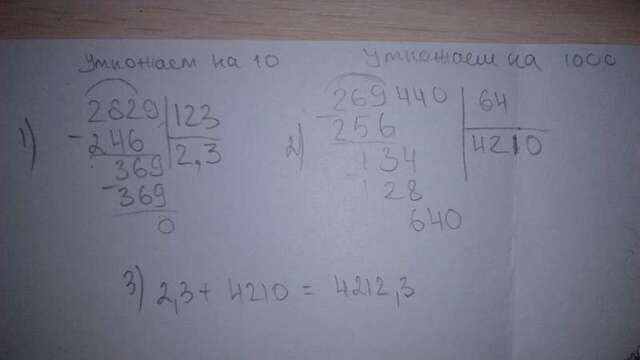 Умножаем на 10
Умножаем на 1000
1)
2829 123
- 246 2,3
369
- 369
0
2)
269440 64
- 256 4210
134
- 128
640
3) 2,3 + 4210 = 4212,3